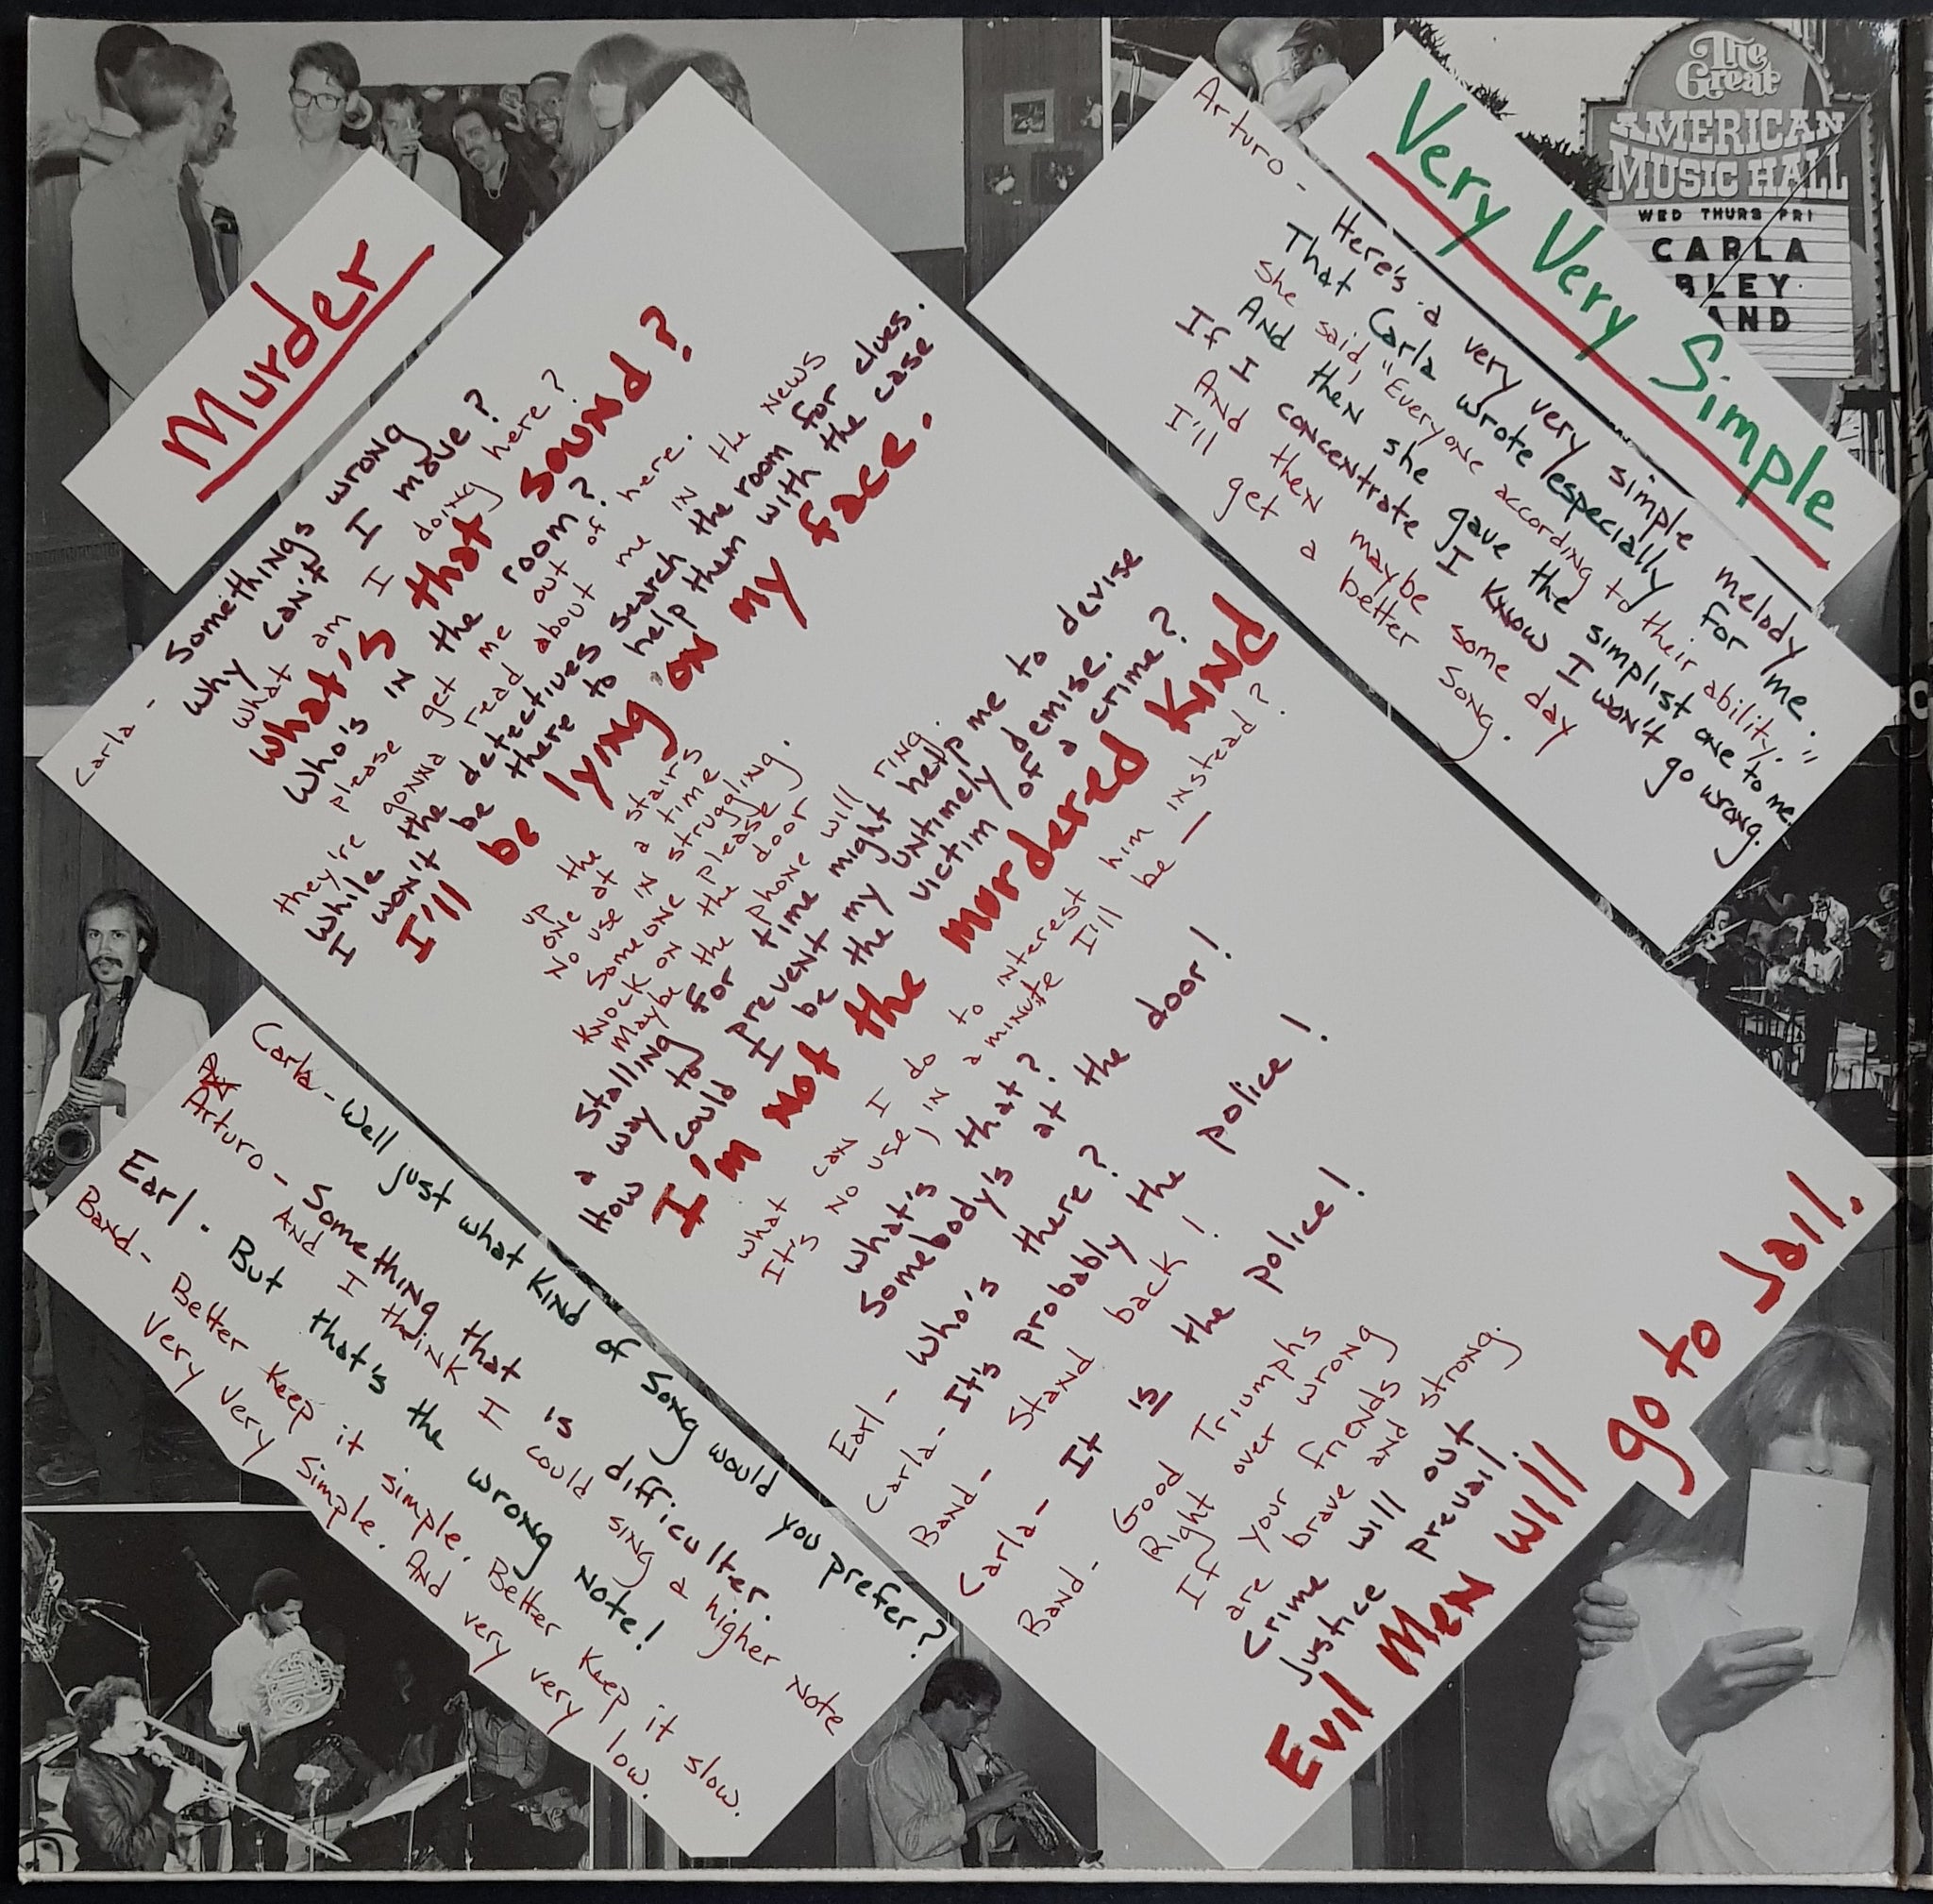 Murder
Carla - Somethings wrong
Why can't I move?
What am I doing here?
What's that sound?
Who's in the room?
please get me out of here.
they're gonna read about me in the news
While the detectives search the room for clues.
I won't be there to help them with the case
I'll be lying on my face.
up the stairs
one at a time
No use in struggling.
Someone please
knock on the door
Maybe the phone will ring.
Stalling for time might help me to devise
a way to prevent my untimely demise.
How could I be the victim of a crime?
I'm not the murdered kind
What can I do to interest him instead?
It's no use, in a minute I'll be —
What's that?
Somebody's at the door!
Earl - Who's there?
Carla - It's probably the police!
Band - Stand back!
Carla - It is the police!
Band - Good Triumphs
Right over wrong
If your friends
are brave and strong.
Crime will out
Justice prevail.
Evil Men will go to Jail.
Very Very Simple
Arturo -
Here's a very very simple melody
That Carla wrote especially for me.
She said, "Everyone according to their ability."
And then she gave the simplist one to me.
If I concentrate I know I won't go wrong.
And then maybe some day
I'll get a better song.
Carla - Well just what kind of song would you prefer?
Arturo - Something that is difficulter.
And I think I could sing a higher note
Earl - But that's the wrong note!
Band - Better keep it simple. Better keep it slow.
Very very simple. And very very low.
The
Great
AMERICAN
MUSIC HALL
WED THURS FRI
CARLA
BLEY
AND